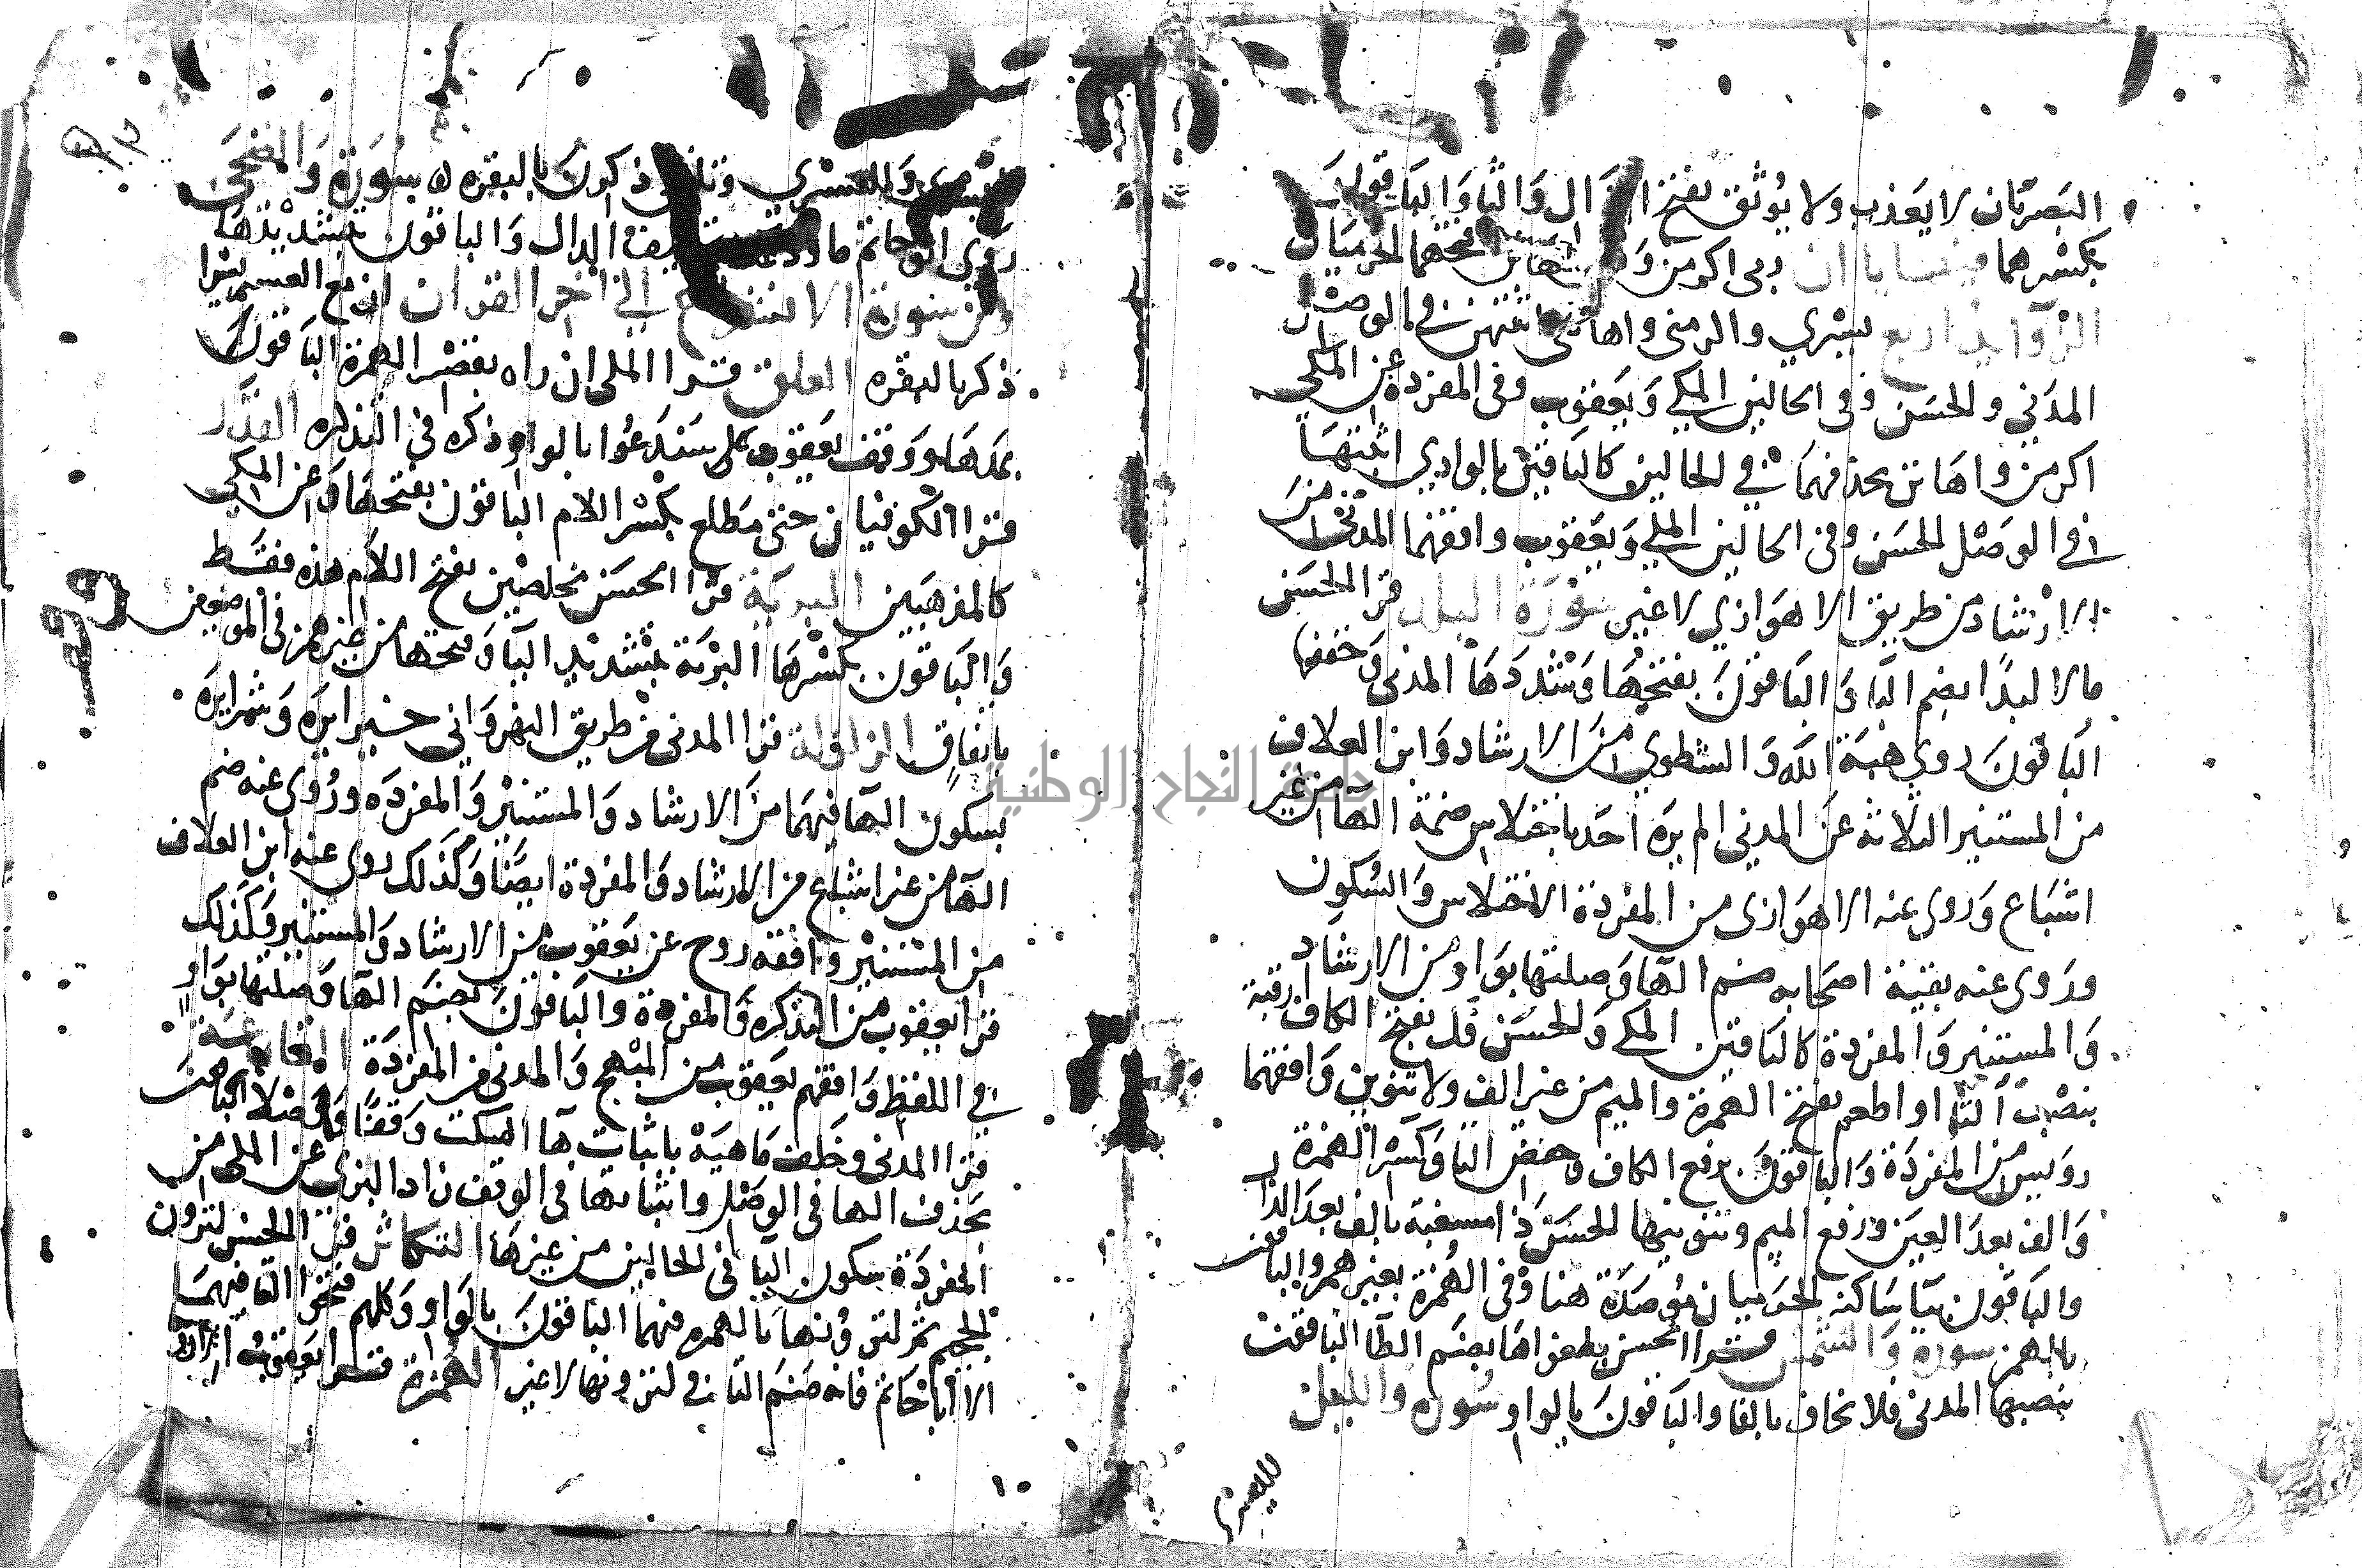 البصريان لا يعذب ولا يوثق بفتح الذال والثا والباقون
بكسرهما فيها يا ان ربى اكرمن و اهانن فتحهما الحرميان
الزوايد اربع يسري والرمنى واهاننى اثبتهن في الوصل
المدني والحسن وفى الحالين المكي ويعقوب وفى المفردة عن المكى
اكرمن واهانن بحذفهما في الحالين كالباقين بالوادي اثبتها
في الوصل الحسن وفى الحالين المكي ويعقوب وافقهما المدنى من
الارشاد من طريق الاهوازي لا غير سورة البلد قرا الحسن
مالا لبدا بضم البا والباقون بفتحها وشددها المدنى وخففها
الباقون روي هبة الله والشطوي من الارشاد وابن العلاف
من المستنير الثلاثة عن المدنى لم يره احد باختلاس ضمة الها من غير
اشباع وروى عنه الاهوازى من المفردة الاختلاس والسكون
وروى عنه بقية اصحابه ضم الها وصلتها بواو من الارشاد
والمستنير والمفردة كالباقين المكي والحسن فك بفتح الكاف رقبة
بنصب التا او اطعم بفتح الهمزة والميم من غير الف ولا تنوين وافقهما
رويس من المفردة والباقون برفع الكاف وخفض التا وكسر الهمزة
والف بعد العين ورفع الميم وتنوينها الحسن ذا مسغبة بالف بعد الذال
والباقون بيا ساكنه الحرميان موصدة هنا وفى الهمزة بغير همز والباقون
بالهمز سورة والشمس قرا الحسن بطغواها بضم الطا الباقون
بنصبها المدنى فلا يخاف بالفا والباقون بالواو سورة والليل
لليسرى
لليسرى وللعسرى وتلظى ذكون بالبقره سورة والضحى
روى ابو حاتم ما ودعك بتخفيف الدال والباقون بتشديدها
ومن سورة الانشراح الى اخر القران ان مع العسر يسرا
ذكر بالبقره العلق قرا المكى ان راه بقصر الهمزة الباقون
بمدها ووقف يعقوب على سندعوا بالواو ذكره فى التذكره القدر
قرا الكوفيان حتى مطلع بكسر اللام الباقون بفتحها وعن المكى
كالمذهبين البرية قرا الحسن مخلصين بفتح اللام هذه فقط
والباقون بكسرها البرية بتشديد اليا وفتحها من غير همز فى الموضعين
باتفاق الزلزلة قرا المدنى من طريق النهرواني خيرا يره وشرا يره
بسكون الها فيهما من الارشاد والمستنير والمفرده وروى عنه ضم
الها من غير اشباع من الارشاد والمفردة ايضا وكذلك روى عنه ابن العلاف
من المستنير وافقه روح عن يعقوب من الارشاد والمستنير وكذلك
قرا يعقوب من التذكره والمفردة والباقون بضم الها وصلتها بواو
في اللفظ وافقهم يعقوب من المبهج والمدنى من المفردة القارعة
قرا المدنى وخلف ماهيه باثبات ها السكت وقفا ووصلا الباقون
بحذف الها فى الوصل واثباتها فى الوقف زاد البزي عن المكى من
المفردة سكون اليا فى الحالين من غيرها التكاثر قرا الحسن لترون
الجحيم ثم لترونها بالهمزه فيهما الباقون بالواو وكلهم فتحوا التا فيهما
الا ابا حاتم فانه ضم التا في لترونها لا غير الهمزة قرا يعقوب